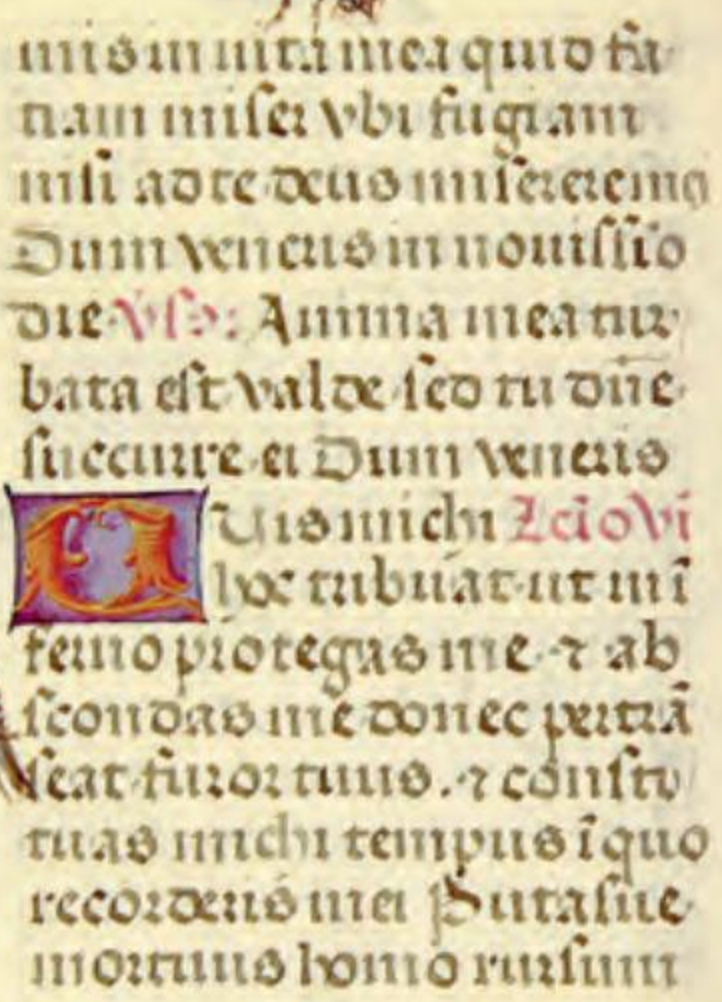 mis in uita mea quid fa
ciam miser vbi fugiam
nisi ad te deus miserere mei
Dum veneris in nouissīo
die Vso: Anima mea tur
bata est valde sed tu dn̄e
succurre ei Dum veneris
Quis michi Lcio vi
hoc tribuat ut in ī
ferno protegas me ⁊ ab
scondas me donec pertrā
seat furor tuus . ⁊ consti
tuas michi tempus ī quo
recorderis mei Putasne
mortuus homo rursum